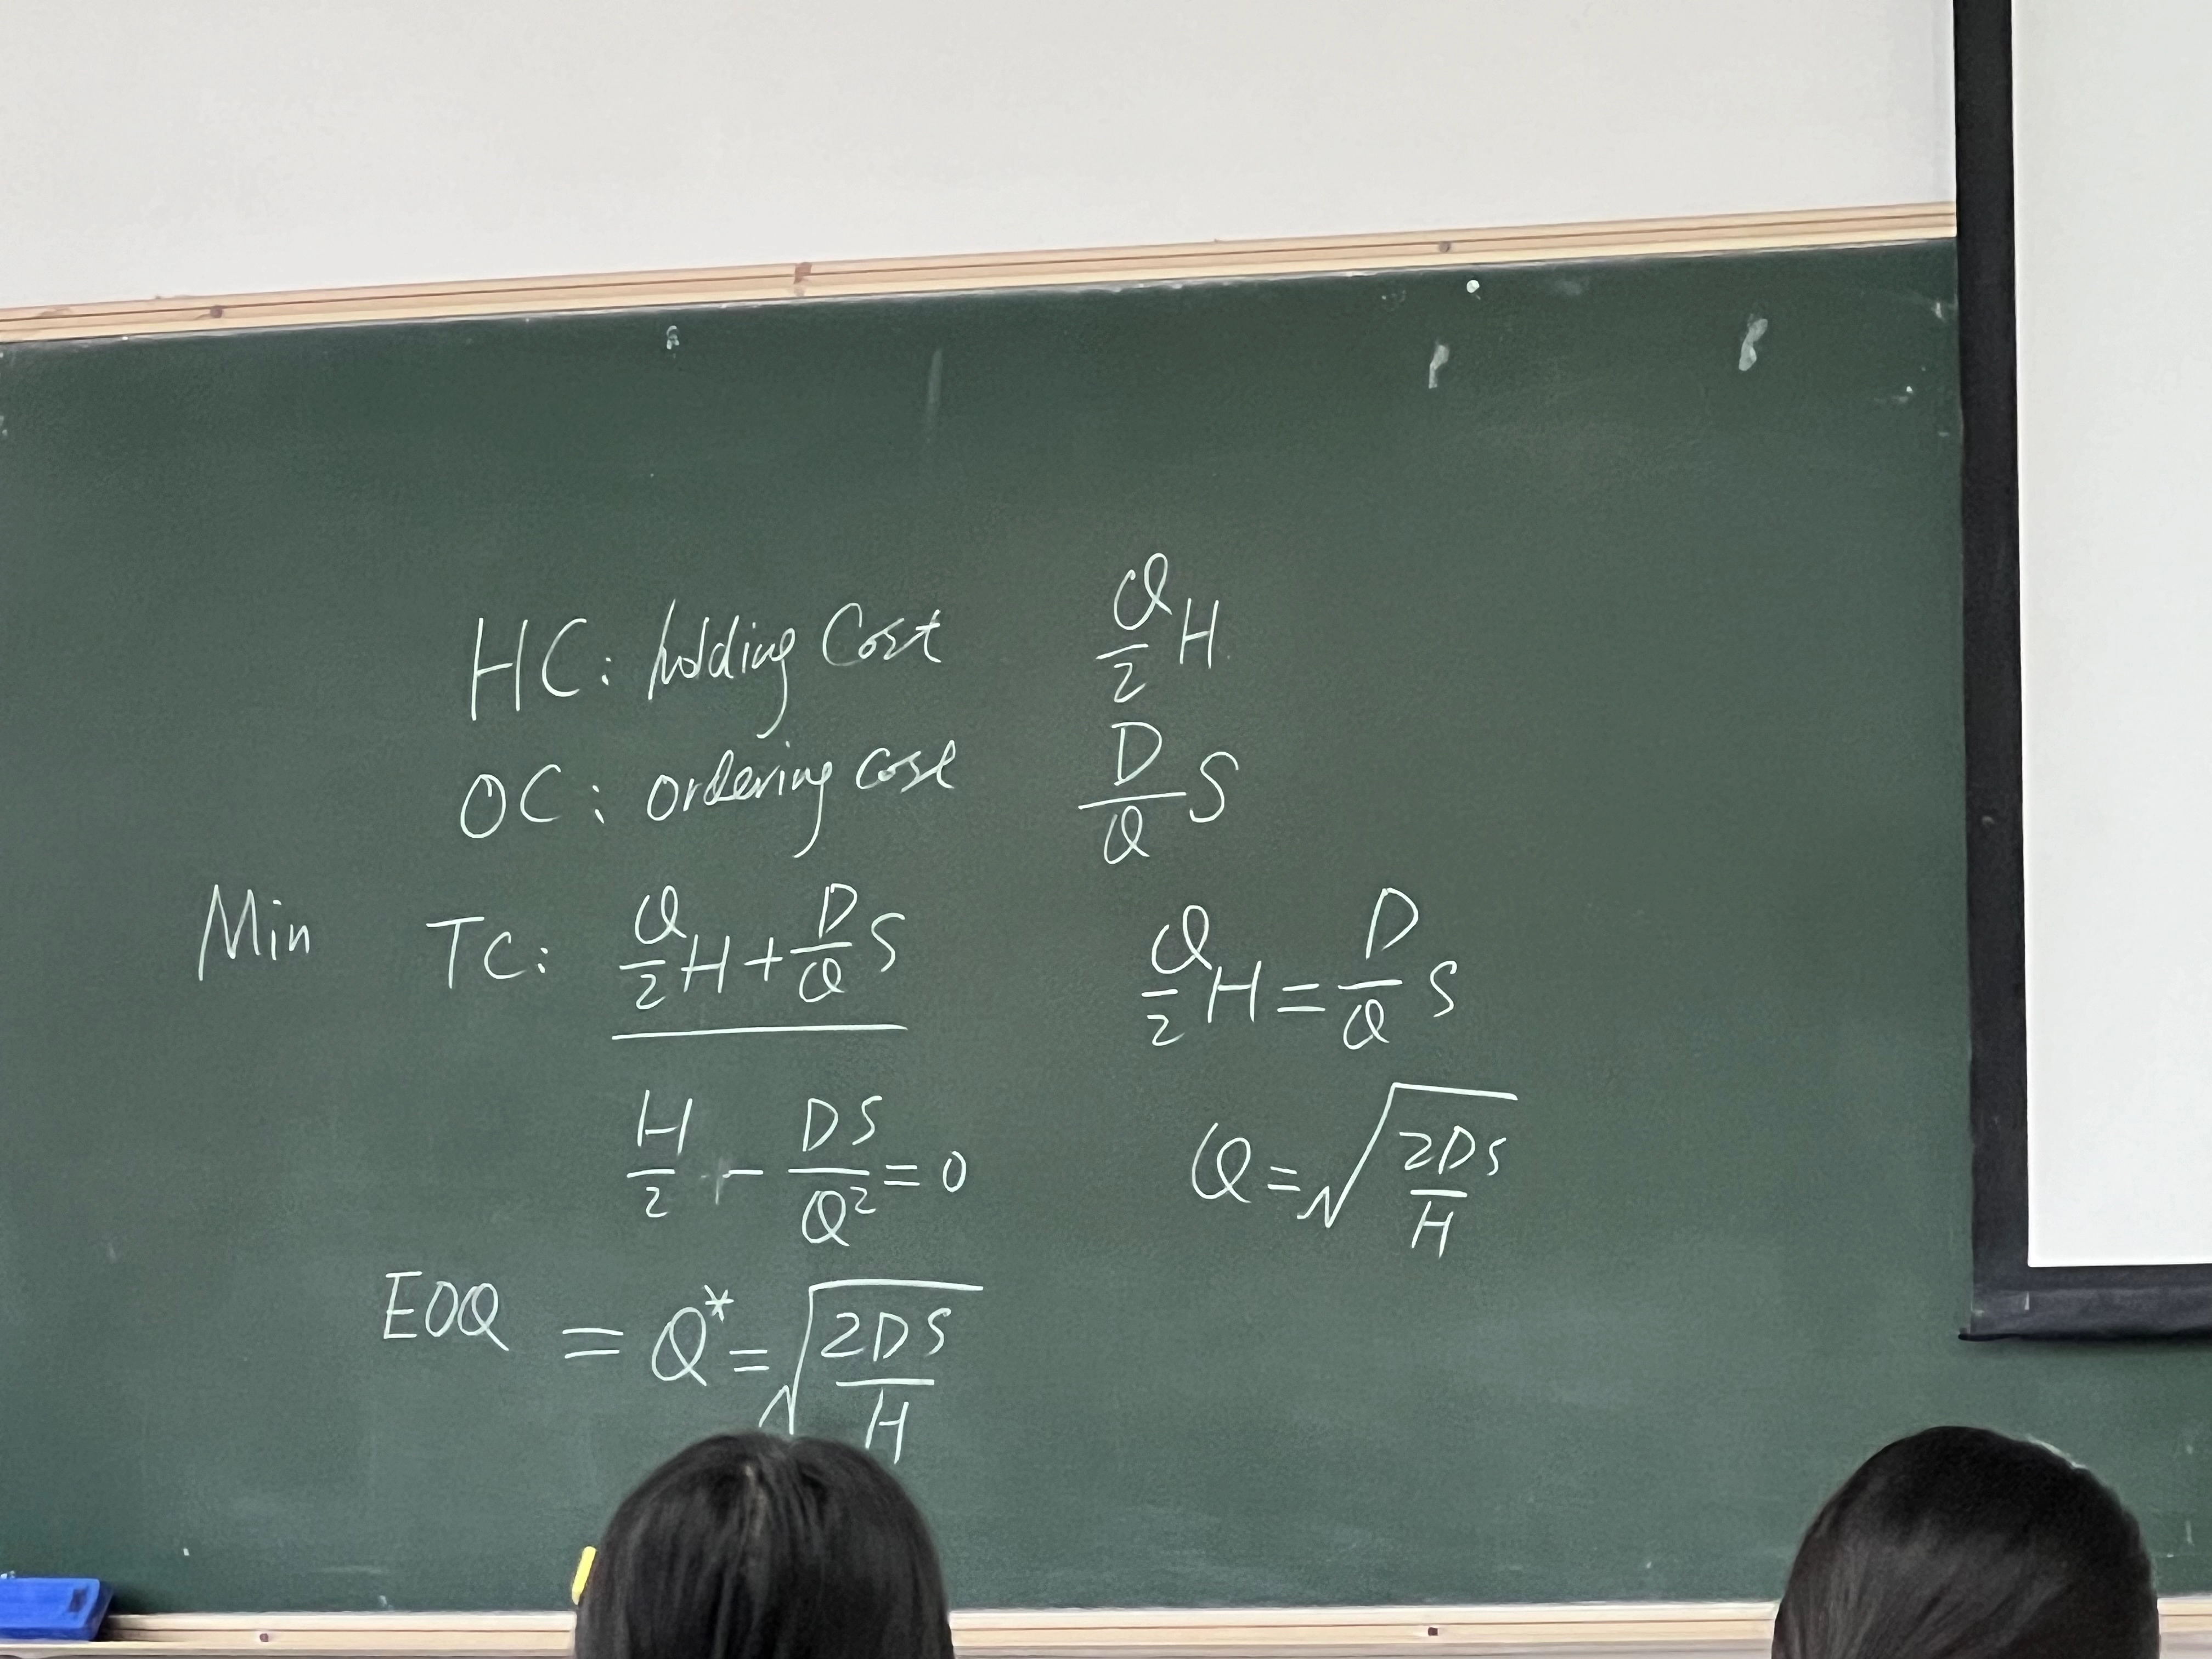 HC: holding Cost Q/2 H
OC: ordering cost D/Q S
Min TC: Q/2 H + D/Q S
Q/2 H = D/Q S
H/2 - DS/Q² = 0
Q = √(2DS/H)
EOQ = Q* = √(2DS/H)